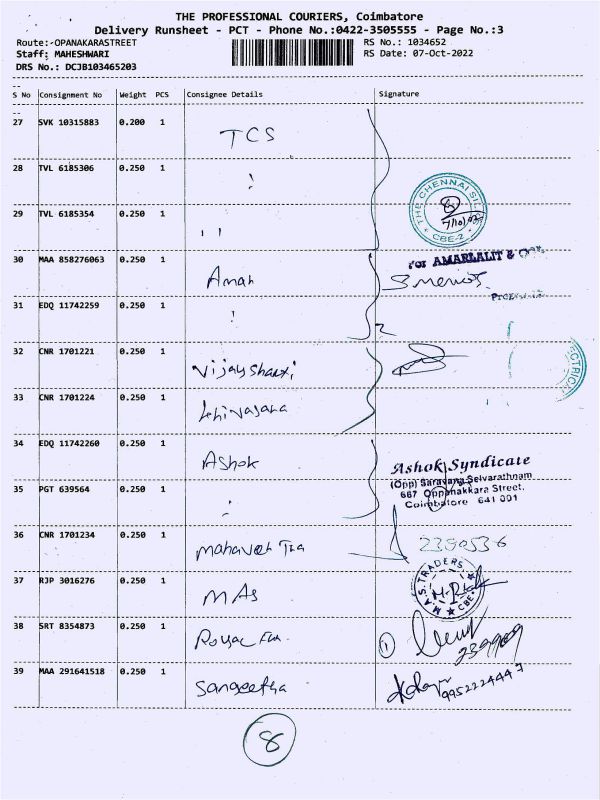 THE PROFESSIONAL COURIERS, Coimbatore
Delivery Runsheet - PCT - Phone No.:0422-3505555 - Page No.:3
Route:-OPANAKARASTREET RS No.: 1034652
Staff: MAHESHWARI RS Date: 07-Oct-2022
DRS No.: DCJB103465203
S No Consignment No Weight PCS Consignee Details Signature
27 SVK 10315883 0.200 1 TCS
28 TVL 6185306 0.250 1
THE CHENNAI SIL
29 TVL 6185354 0.250 1
CBE-2
30 MAA 858276063 0.250 1 Aman
For AMARLALIT &
31 EDQ 11742259 0.250 1
32 CNR 1701221 0.250 1
CTRICA
33 CNR 1701224 0.250 1
34 EDQ 11742260 0.250 1 Ashok
Ashok Syndicate
(Opp) Saravana Selvarathnam
35 PGT 639564 0.250 1
667 Oppanakkara Street,
Coimbatore 641 001
36 CNR 1701234 0.250 1
2390536
37 RJP 3016276 0.250 1 MAS
M.A.S. TRADERS
CBE
38 SRT 8354873 0.250 1 Royal
1
39 MAA 291641518 0.250 1 Sangeetha
9952224447
8